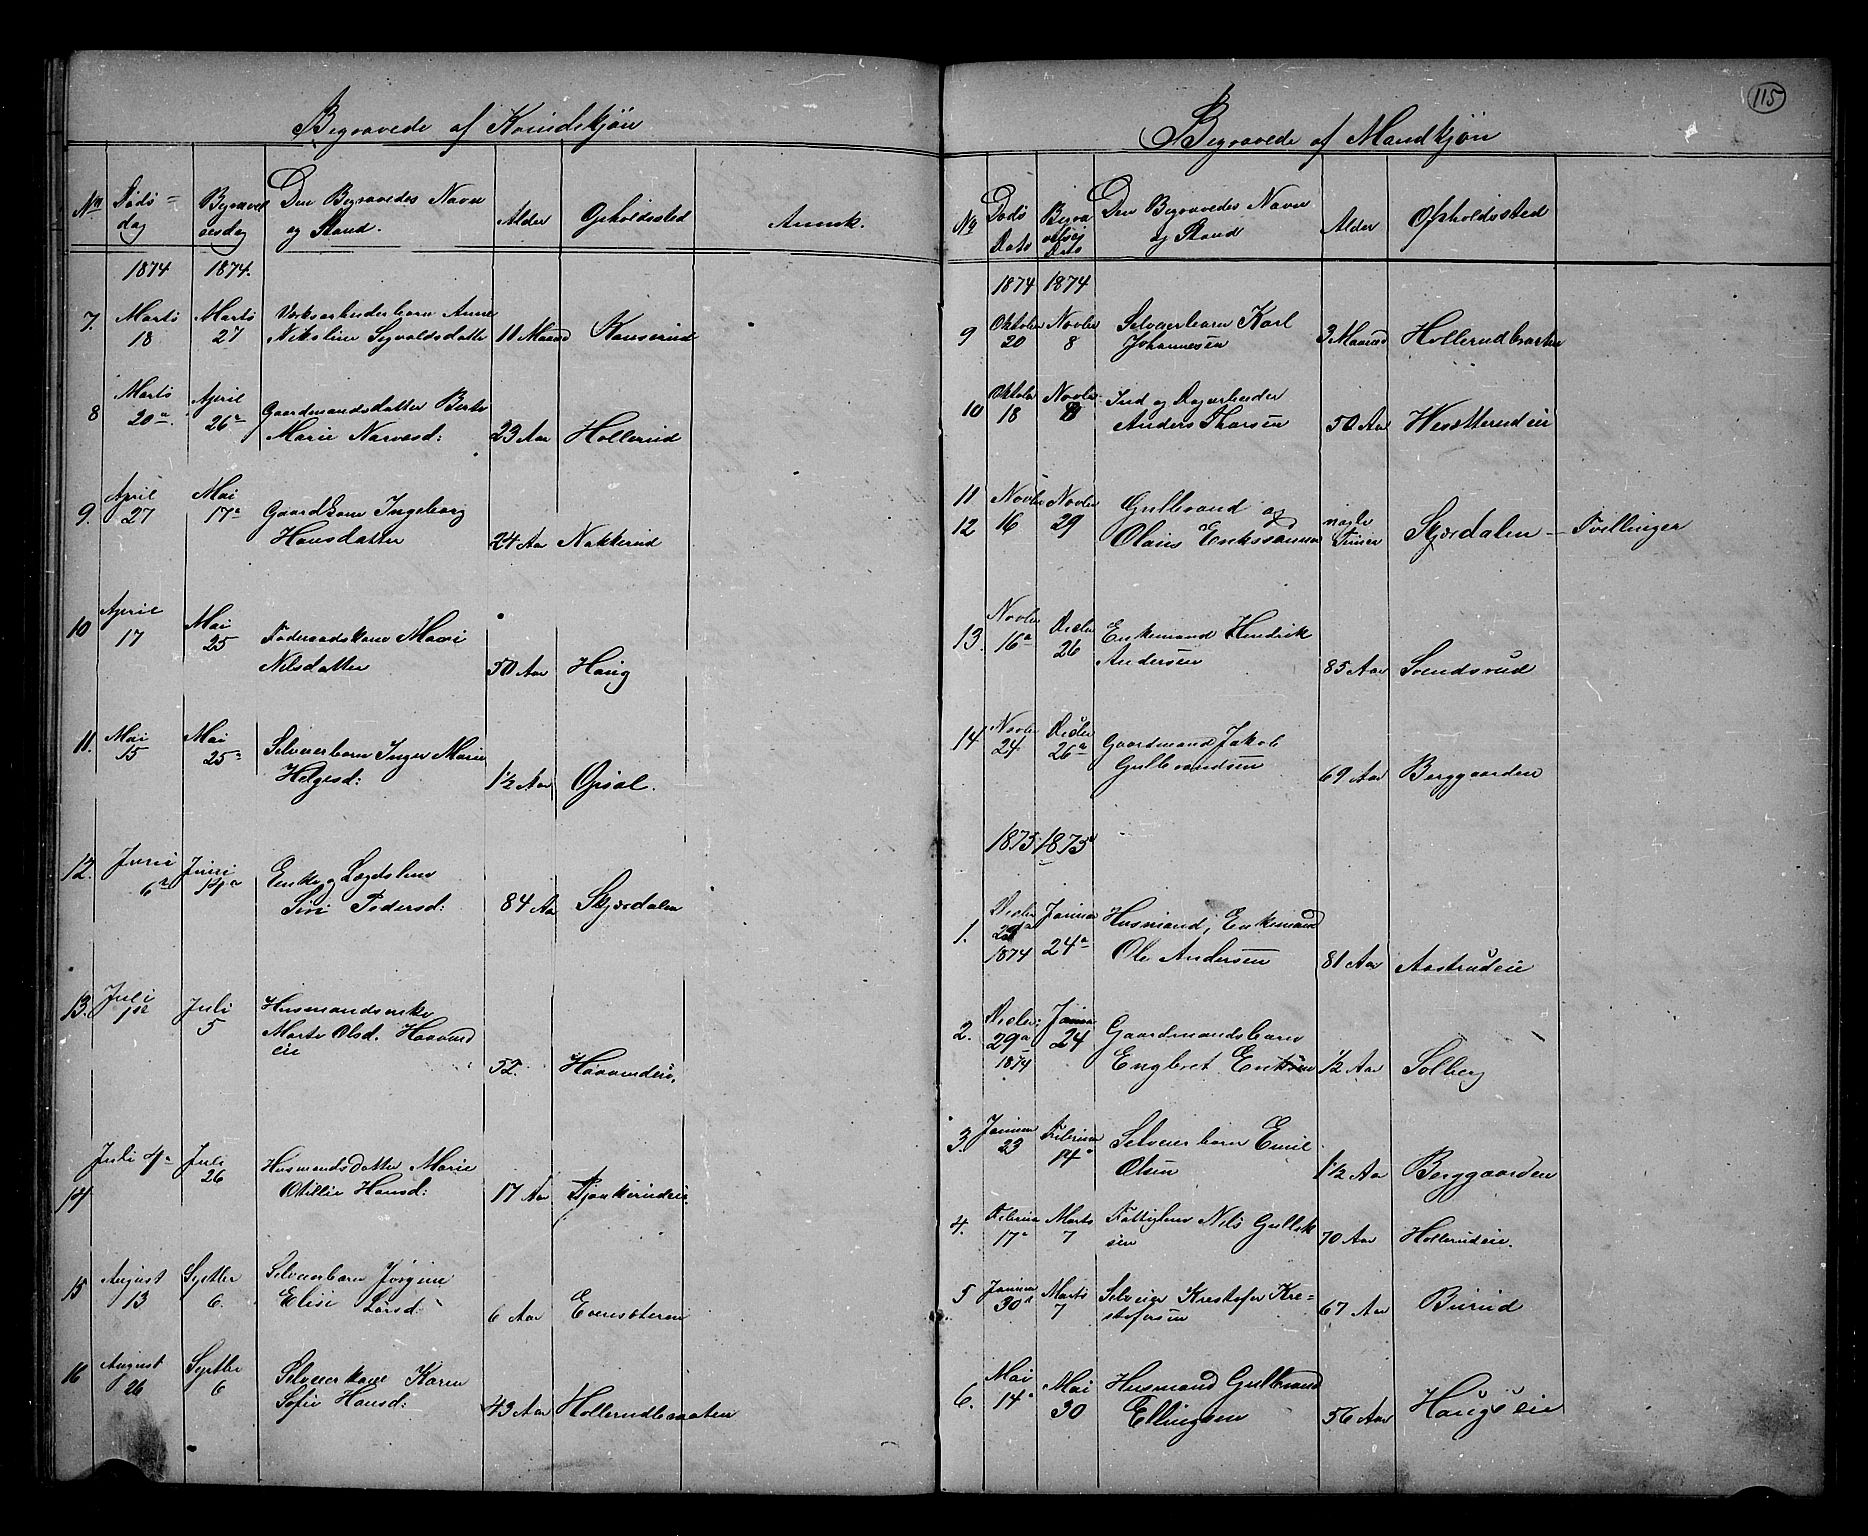 Begravede af Kvindekjøn
No Døds= dag Begravel- sesdag Den Begravedes Navn og Stand. Alder Opholdssted Anmk.
1874 1874.
7. Marts 18 Marts 27 Anne
Sigvaldsdatter 11 Maaned
8 Marts 20de April 26de Gaardmandsdatter Berte
Marie Narvesd: 23 Aar Hollerud
9. April 27 Mai 17de Gaardkone Ingeborg
Hansdatter 24 Aar Nakkerud
10 April 17 Mai 25 Føderaadskone Mari
Nilsdatter 50 Aar Haug
11. Mai 15 Mai 25de Selveierbarn Inger Marie
Helgesd: 1½ Aar Opsal.
12. Juni 6te Juni 14de Enke og Lægdslem
Siri Pedersd: 84 Aar Skjærdalen
13. Juli 1ste Juli 5 Husmandsenke
Marte Olsd. Haavind
eie 52. Haavindeie.
14 Juli 4de Juli 26 Husmandsdatter Marie
Otillie Hansd: 17 Aar
15 August 13 Septbr 6. Selveierbarn Jørgine
Elise Larsd: 6 Aar
16 August 26 Septbr 6 Selveierkone Karen
Sofie Hansd: 43 Aar Hollerudbraaten
115
Begravede af Mandkjøn
No Døds Dato Begra velses Dato Den Begravedes Navn og Stand Alder Opholdssted
1874 1874
9 Oktober 20 Novbr 8 Selveierbarn Karl
Johannesen 3 Maaned Hollerudbraaten
10 Oktober 18 Novbr 8 Ind og Dagarbeider
Anders Thorsen 50 Aar
11 12 Novbr 16 Novbr 29 Gulbrand og
Olaus Erikssønner nogle Timer Skjærdalen — Tvillinger
13. Novbr 16de Decbr 26 Enkemand Hendrik
Andersen 85 Aar Svendsrud
14 Novbr 24 Decbr 26de Gaardmand Jakob
Gulbrandsen 69 Aar Berggaarden
1875 1875
1. Decbr 29de 1874 Januar 24de Husmand, Enkemand
Ole Andersen 81 Aar Aastrudeie
2. Decbr: 29de 1874 Januar 24 Gaardmandsbarn
Engbret Eriksen ½ Aar Solberg
3. Januar 23 Februar 14de Selveierbarn Emil
Olsen 1½ Aar Berggaarden
4. Februar 17de Marts 7 Fattiglem Nils Gulbrik
sen 70 Aar Hollerudeie.
5 Januar 30te Marts 7 Selveier Kristofer Kri=
stofersen 67 Aar Burud
6. Mai 14de Mai 30 Husmand Gulbrand
Ellingsen 56 Aar Haugseie